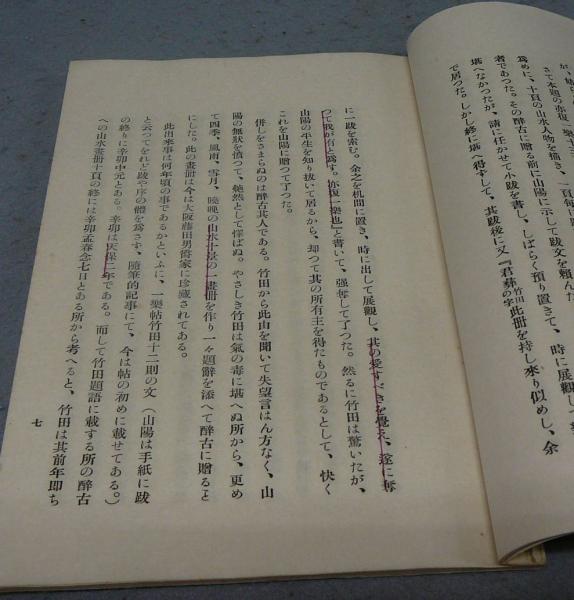 が、
さて本題の赤復一樂
爲めに、十頁の山水人物を描き、一頁每に
者であつた。その醉古に贈る前に山陽に示して跋文を賴んだ
堪へなかつたが、請に任かせて小跋を書し、しばらく預り置きて、時に展觀して
で居つた。しかし終に堪へ得ずして、其跋後に又『君彜竹田の字此册を持し來り似めし、余
に一跋を索む。余之を机間に置き、時に出して展觀し、其の愛すべきを覺え、遂に奪
つて我が有と爲す。亦復一樂也』と書いて、强奪して了つた。然るに竹田は驚いたが、
山陽の平生を知り拔いて居るから、却つて其の所有主を得たものであるとして、快く
これを山陽に贈つて了つた。
併しをさまらぬのは醉古其人である。竹田から此由を聞いて失望言はん方なく、山
陽の無狀を憤つて、艴然として懌ばぬ。やさしき竹田は氣の毒に堪へぬ所から、更め
て四季、風雨、雪月、曉晩の山水十景の一畫册を作り一々題辭を添へて醉古に贈るよ
にした。此の畫册は今は大阪藤田男爵家に珍藏されてある。
此出來事は何年頃の事であるかといふに、一樂帖竹田十二則の文（山陽は手紙に跋
と云つてをれど跋や序の體を爲さず、隨筆的記事にて、今は帖の初めに載せてある。）
の終りに辛卯中元とある。辛卯は天保二年である。而して竹田題語に載する所の醉古
への山水畫册十頁の終には辛卯孟春念七日とある所から考へると、竹田は其前年卽ち
七